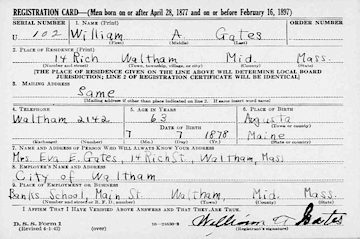 REGISTRATION CARD—(Men born on or after April 28, 1877 and on or before February 16, 1897)
SERIAL NUMBER 1. NAME (Print)
U 102 William A. Gates
(First) (Middle) (Last)
2. PLACE OF RESIDENCE (Print)
14 Rich Waltham Mid. Mass.
(Number and street) (Town, township, village, or city) (County) (State)
[THE PLACE OF RESIDENCE GIVEN ON THE LINE ABOVE WILL DETERMINE LOCAL BOARD
JURISDICTION; LINE 2 OF REGISTRATION CERTIFICATE WILL BE IDENTICAL]
3. MAILING ADDRESS
Same
[Mailing address if other than place indicated on line 2. If same insert word same]
4. TELEPHONE 5. AGE IN YEARS 6. PLACE OF BIRTH
Waltham 2142 63 Augusta
DATE OF BIRTH (Town or county)
7 7 1878 Maine
(Exchange) (Number) (Mo.) (Day) (Yr.) (State or country)
7. NAME AND ADDRESS OF PERSON WHO WILL ALWAYS KNOW YOUR ADDRESS
Mrs. Eva E. Gates, 14 Rich St., Waltham, Mass
8. EMPLOYER'S NAME AND ADDRESS
City of Waltham
9. PLACE OF EMPLOYMENT OR BUSINESS
Banks School, Main St. Waltham Mid. Mass.
(Number and street or R. F. D. number) (Town) (County) (State)
I AFFIRM THAT I HAVE VERIFIED ABOVE ANSWERS AND THAT THEY ARE TRUE.
D. S. S. Form 1
(Revised 4-1-42) (over) William A. Gates
(Registrant's signature)